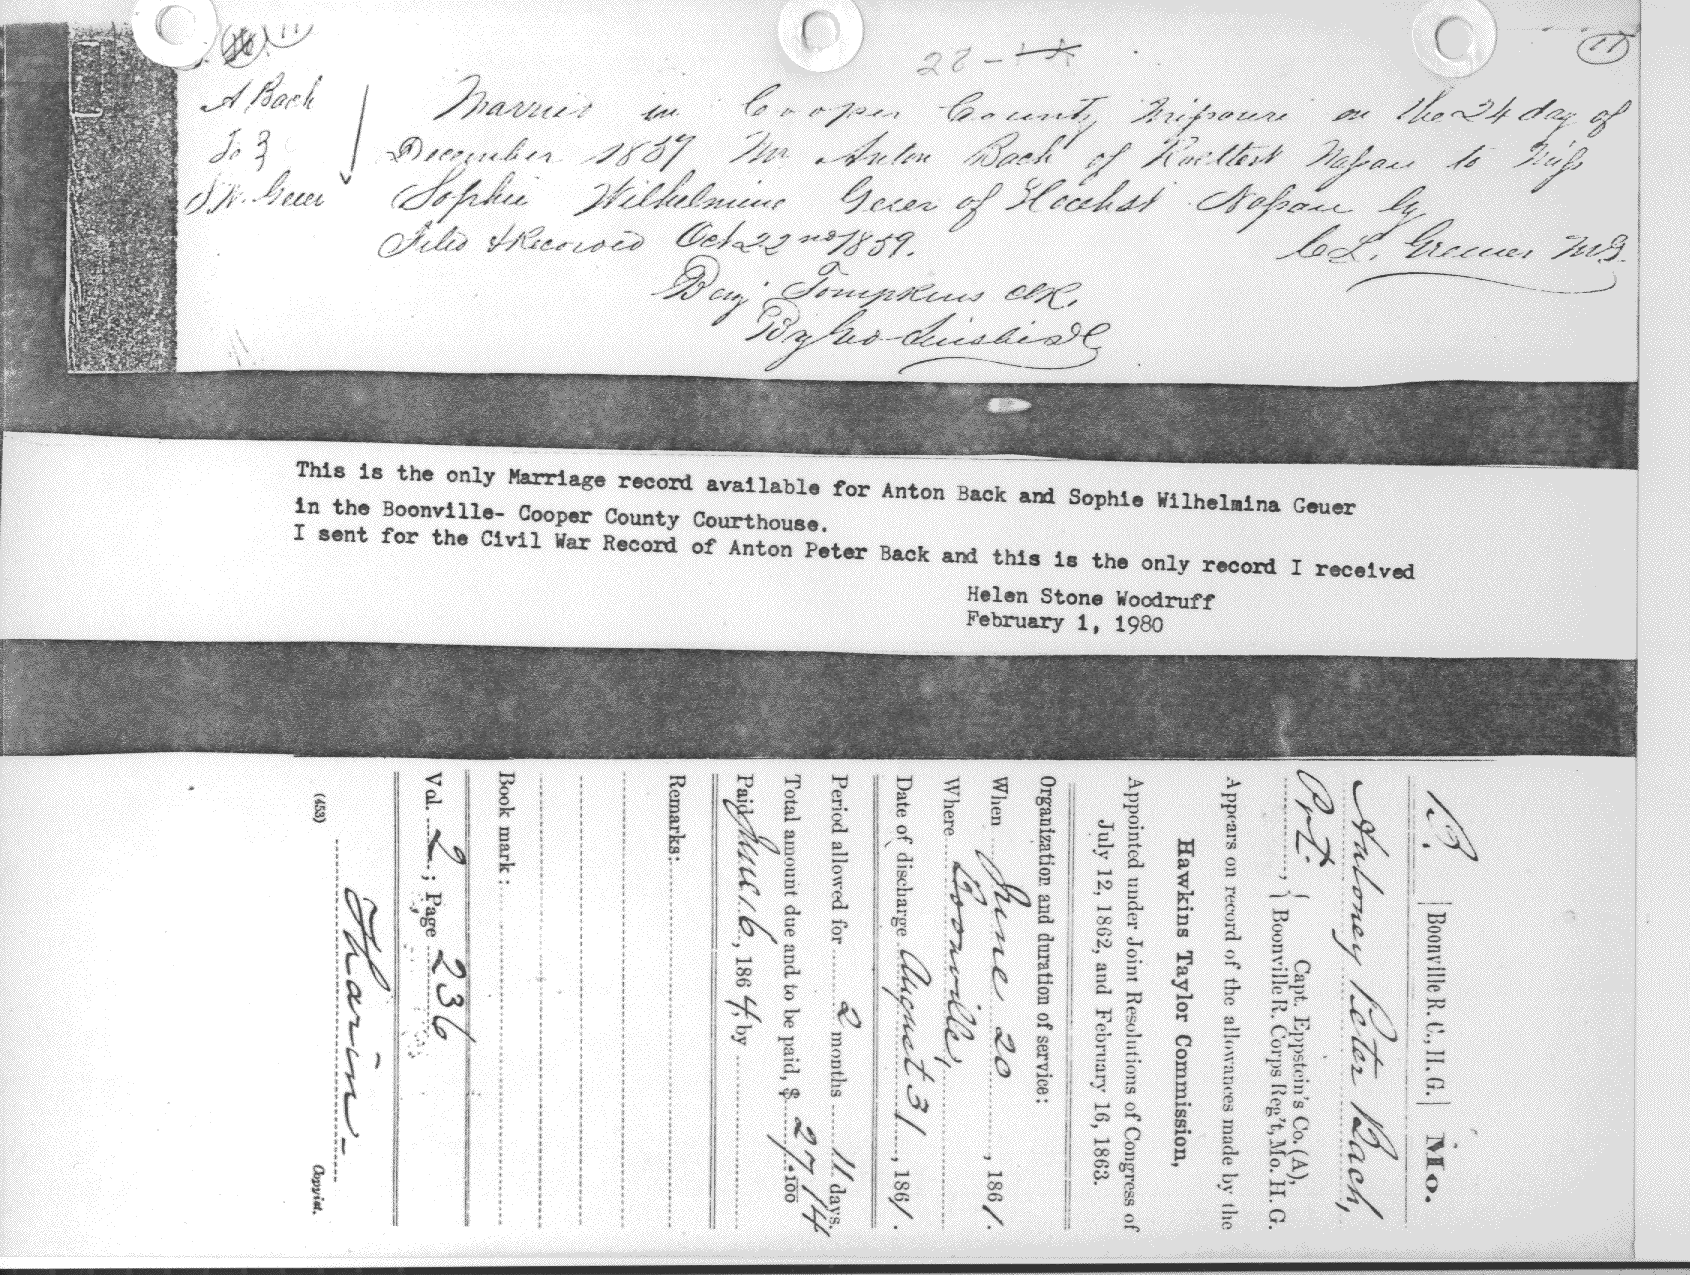 11
22 -
11
A Bach
To
S. W. Geuer
Married in Cooper County Missouri on the 24 day of
December 1857 Mr Anton Bach of Nassau to Miss
Sophie Wilhelmine Geuer of Hoechst Nassau by
C L. Greiner M.G.
Filed & Recorded Oct 22nd 1859.
Benj Tompkins Clk.
By Geo
This is the only Marriage record available for Anton Back and Sophie Wilhelmina Geuer
in the Boonville- Cooper County Courthouse.
I sent for the Civil War Record of Anton Peter Back and this is the only record I received
Helen Stone Woodruff
February 1, 1980
B. | Boonville R. C., H. G. | Mo.
Anthoney Peter Bach,
Pvt., { Capt. Eppstein's Co. (A),
Boonville R. Corps Reg't, Mo. H. G.
Appears on record of the allowances made by the
Hawkins Taylor Commission,
Appointed under Joint Resolutions of Congress of
July 12, 1862, and February 16, 1863.
Organization and duration of service:
When June 20, 1861.
Where Boonville,
Date of discharge August 31, 1861.
Period allowed for 2 months 11 days.
Total amount due and to be paid, $ 27 14/100
Paid June 16, 1864, by
Remarks:
Book mark:
Vol. 2; Page 236
Tharin
(453) Copyist.